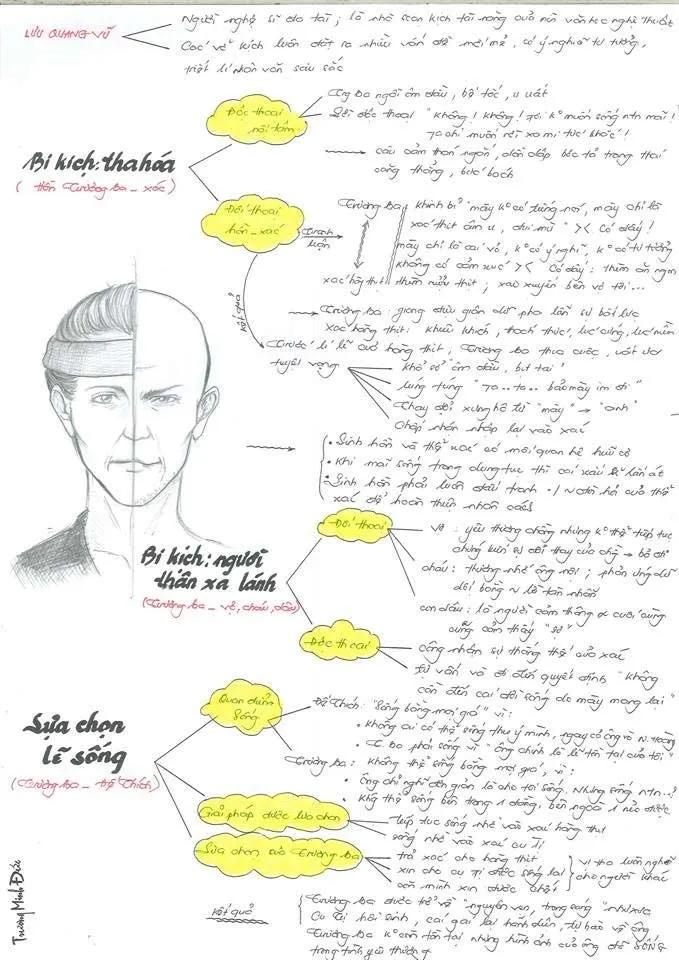 LƯU QUANG VŨ
Người nghệ sĩ đa tài; là nhà soạn kịch tài năng của nền văn học nghệ thuật
Các vở kịch luôn đặt ra nhiều vấn đề mới mẻ, có ý nghĩa tư tưởng,
triết lí nhân văn sâu sắc
Bi kịch: tha hóa
(Hồn Trương Ba - xác)
Độc thoại
nội tâm
Trg Ba ngồi ôm đầu, bế tắc, u uất
Lời độc thoại "Không! Không! Tôi ko muốn sống ntn mãi!
câu cảm thán ngắn, dồn dập
căng thẳng, bức bách
Đối thoại
hồn - xác
Tranh
luận
Trương Ba
khinh bỉ "mày ko có tiếng nói, mày chỉ là
xác thịt âm u, đui mù" >< Có đấy!
mày chỉ là cái vỏ, ko có ý nghĩ, ko có tư tưởng
không có cảm xúc >< Có đấy: thèm ăn ngon
xác hàng thịt
thèm rượu thịt; xao xuyến bên vợ tôi...
kết quả
Trương Ba: giọng đuối giận dữ pha lẫn sự bất lực
Xác hàng thịt: khuấy khích, thách thức, lúc cứng, lúc mềm
Trước lí lẽ của hàng thịt, Trương Ba thua cuộc,
tuyệt vọng
khổ sở ôm đầu, bịt tai!
lúng túng "Ta.. ta.. bảo mày im đi"
Thay đổi xưng hô từ "mày" → "anh"
Chấp nhận nhập lại vào xác
• Linh hồn và thể xác có mối quan hệ hữu cơ
• Khi mãi sống trong dung tục thì cái xấu sẽ lấn át
• Linh hồn phải luôn đấu tranh đòi hỏi của thể
xác để hoàn thiện nhân cách
Bi kịch: người
thân xa lánh
(Trương Ba - vợ, cháu, dâu)
Đối thoại
Vợ: yêu thương chồng nhưng ko thể tiếp tục
chứng kiến sự đổi thay của chồng → bỏ đi
cháu: thương nhớ ông nội; phản ứng dữ
dội bằng lời tàn nhẫn
con dâu: là người cảm thông cuối cùng
cũng cảm thấy "sợ"
Độc thoại
công nhận sự thắng thế của xác
tự vấn và đi đến quyết định "Không
cần đến cái đời sống do mày mang lại"
Lựa chọn
lẽ sống
(Trương Ba - Đế Thích)
Quan điểm
sống
Đế Thích: "Sống bằng mọi giá" vì:
• Không ai có thể sống theo ý mình, ngay cả ông và N. Hoàng
• T. Ba phải sống vì "Ông chính là lẽ tồn tại của tôi"
Trương Ba: Không thể sống bằng mọi giá, vì:
• Ông chỉ nghĩ đơn giản là cho tôi sống. Nhưng sống ntn..?
• Khg thể sống bên trong 1 đằng, bên ngoài 1 nẻo được
Giải pháp được lựa chọn
tiếp tục sống nhờ vào xác hàng thịt
sống nhờ vào xác cu Tị
Lựa chọn của Trương Ba
trả xác cho hàng thịt
xin cho cu Tị được sống lại
còn mình xin được chết
vị tha luôn nghĩ
cho người khác
kết quả
Trương Ba được trở về "nguyên vẹn, trong sạch" như xưa
Cu Tị hồi sinh, cái gái lại
Trương Ba ko còn tồn tại nhưng hình ảnh của ông để SỐNG
trong tình yêu thương
Trương Minh Đức